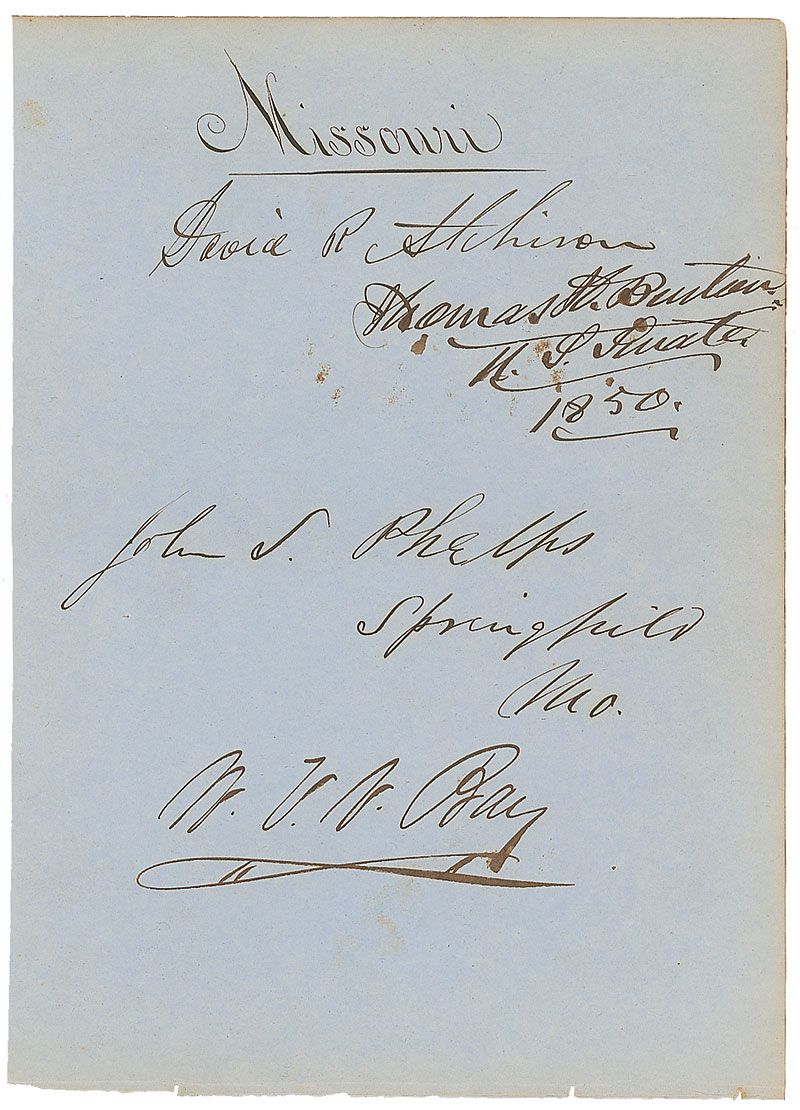 Missouri
David R Atchison
Thomas H. Benton.
U. S. Senate.
1850.
John S. Phelps
Springfield
Mo.
W. V. N. Bay